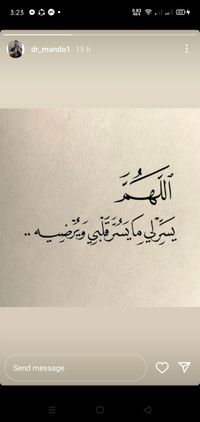 3:23
0.93 KB/S
63
dr_mando1 15 h
اللَّهُمَّ
يَسِّرْ لِي مَا يَسُرُّ قَلْبِي وَيُرْضِيهِ ..
Send message